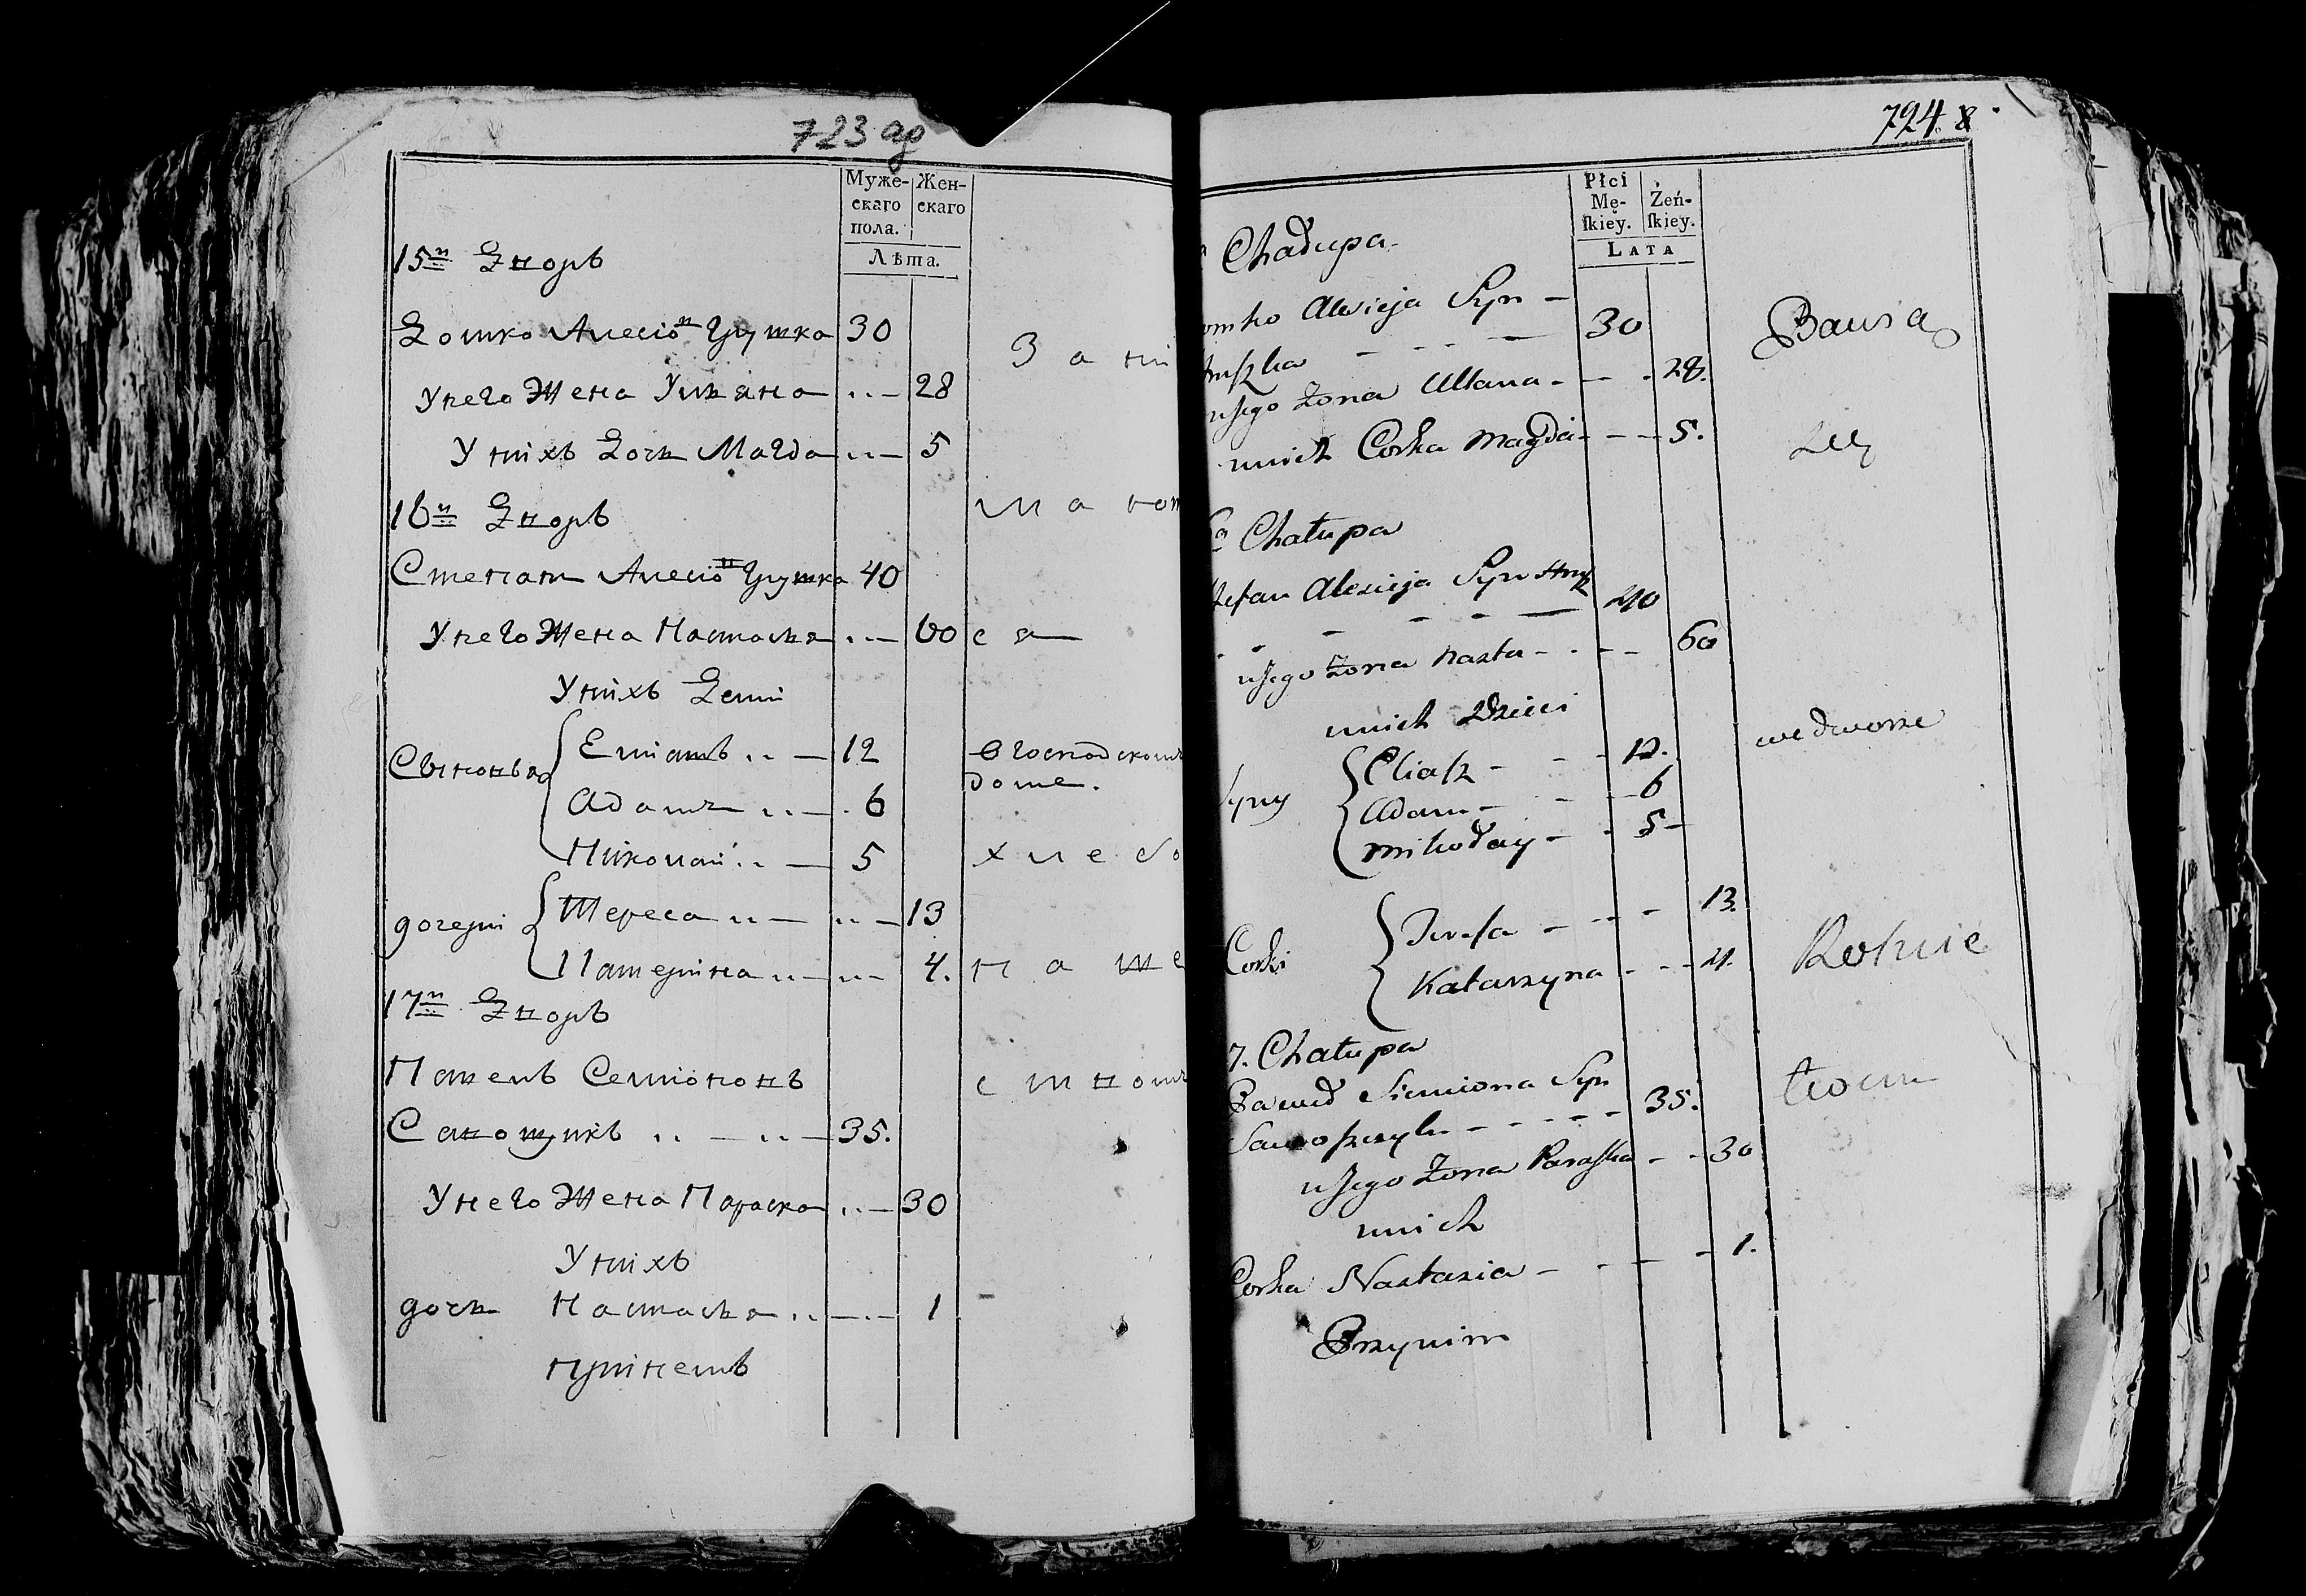 723 об
Муже-
скаго
пола.
Жен-
скаго
Лѣта.
15й Дворъ
Домко Алесіов Грушка 30
У него Жена Ульяна 28
У нихъ Дочь Магда 5
За ни
16й Дворъ
ма ю
Степан Алесіов Грушка 40
У него Жена Настасья 60
ся
У нихъ Дети
Сыновья
Еліашъ 12
в господском
доме.
Адамъ 6
Николай 5
хлебо
дочери
Тереса 13
Катерина 4.
паше
17й Дворъ
Павелъ Семіоновъ
ством
Савощикъ 35.
У него Жена Параска 30
У нихъ
дочь Настасья 1
принемъ
724. 8
Płci
Mę-
ſkiey.
Żeń-
ſkiey.
LATA
Chałupa
omko Alexieja Syn 30
Bawią
uſzka
u Jego Żona Ullana 28.
u nich Corka Magda 5.
się
Chałupa
zefan Alexieja Syn Hru 40
u Jego Żona Nasta 60
u nich Dzieci
Syny
Eliaſz 12.
we dworze
Adam 6
Mikołay 5
Corki
Tereſa 13.
Katarzyna 4.
Rolnic
7. Chałupa
Paweł Siemiona Syn 35.
twem
Sawoſzczyk
u Jego Żona Paraſka 30
u nich
Corka Nastazia 1.
Przynim